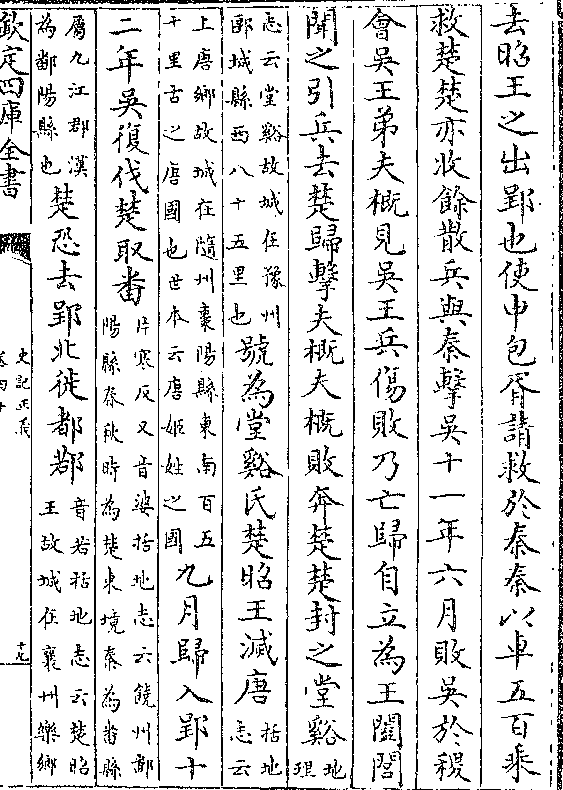 去昭王之出郢也使申包胥請救於秦秦以車五百乘
救楚楚亦收餘散兵與秦擊吳十一年六月敗吳於稷
會吳王弟夫概見吳王兵傷敗乃亡歸自立為王闔閭
聞之引兵去楚歸擊夫概夫概敗奔楚楚封之堂谿地理
志云堂谿故城在豫州
郾城縣西八十五里也
號為堂谿氏楚昭王滅唐括地志云
上唐鄉故城在隨州棗陽縣東南百五
十里古之唐國也世本云唐姬姓之國
九月歸入郢十
二年吳復伐楚取番片寒反又音婆括地志云饒州鄱
陽縣春秋時為楚東境秦為番縣
屬九江郡漢
為鄱陽縣也
楚恐去郢北徙都鄀音若括地志云楚昭
王故城在襄州樂鄉
欽定四庫全書
史記正義
卷四十
十九